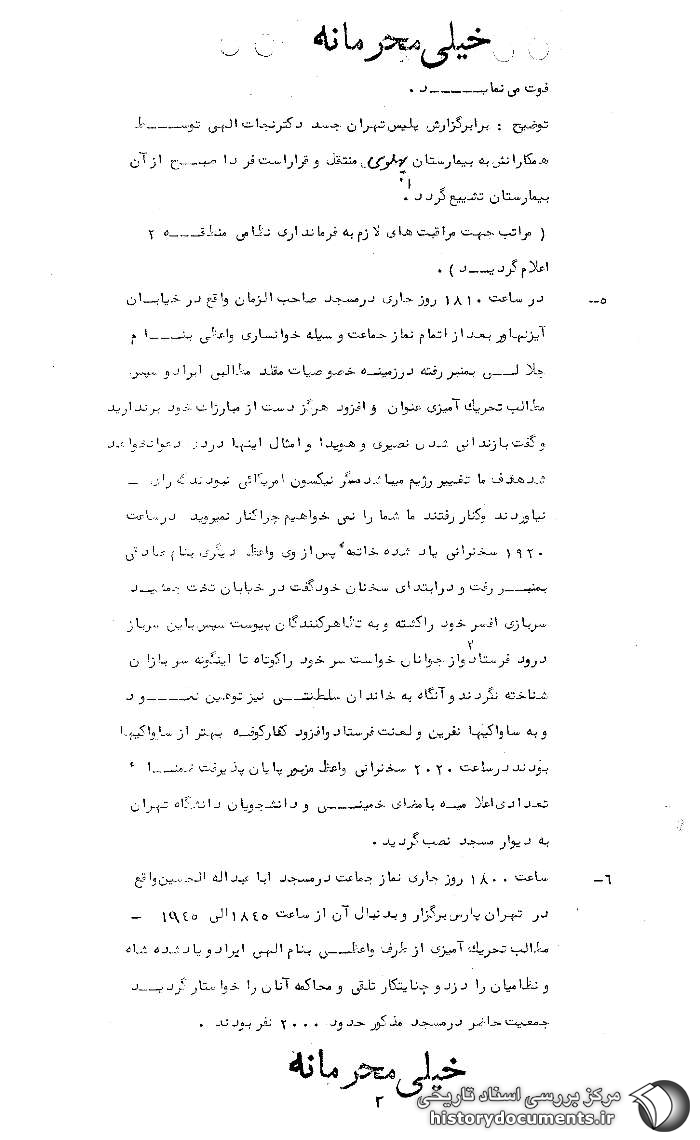 خیلی محرمانه
فوت می نماید .
توضیح : برابرگزارش پلیس تهران جسد دکترنجات الهی توسط
همکارانش به بیمارستان پهلوی منتقل و قراراست فردا صبح از آن
بیمارستان تشییع گردد .
( مراتب جهت مراقبت های لازم به فرمانداری نظامی منطقه ۲
اعلام گردید ) .
۵- در ساعت ۱۸۱۰ روز جاری درمسجد صاحب الزمان واقع در خیابان
آیزنهاور بعد از اتمام نماز جماعت وسیله خوانساری واعظی بنام
جلالی بمنبر رفته درزمینه خصوصیات مقلد مطالبی ایراد و سپس
مطالب تحریک آمیزی عنوان و افزود هرگز دست از مبارزات خود برندارید
وگفت بازندانی شدن نصیری و هویدا و امثال اینها درد دعوانخواهد
شد هدف ما تغییر رژیم میباشد مگر نیکسون امریکائی نبودند که رای -
نیاوردند وکنار رفتند ما شما را نمی خواهیم چراکنار نمیروید درساعت
۱۹۲۰ سخنرانی یاد شده خاتمه پس از وی واعظ دیگری بنام صادقی
بمنبر رفت و درابتدای سخنان خودگفت در خیابان تخت جمشید
سربازی افسر خود راکشته و به تظاهرکنندگان پیوست سپس باین سرباز
درود فرستاد و از جوانان خواست سر خود راکوتاه تا اینگونه سربازان
شناخته نگردند و آنگاه به خاندان سلطنتی نیز توهین نمود
و به ساواکیها نفرین و لعنت فرستاد وافزود کفارکوفه بهتر از ساواکیها
بودند درساعت ۲۰۲۰ سخنرانی واعظ مزبور پایان پذیرفت ضمنا
تعدادی اعلامیه بامضای خمینی و دانشجویان دانشگاه تهران
به دیوار مسجد نصب گردید .
۶- ساعت ۱۸۰۰ روز جاری نماز جماعت درمسجد ابا عبداله الحسین واقع
در تهران پارس برگزار و بدنبال آن از ساعت ۱۸۴۵ الی ۱۹۴۵ -
مطالب تحریک آمیزی از طرف واعظی بنام الهی ایراد و یاد شده شاه
و نظامیان را دزد و جنایتکار تلقی و محاکمه آنان را خواستار گردید
جمعیت حاضر درمسجد مذکور حدود ۲۰۰۰ نفر بودند .
خیلی محرمانه
۲
مرکز بررسی اسناد تاریخی
historydocuments.ir